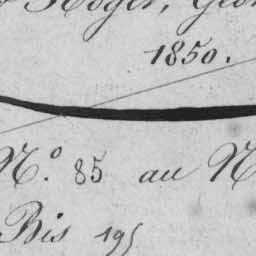 Roger, Geor
1850.
N.º 85 au N
Bis 195